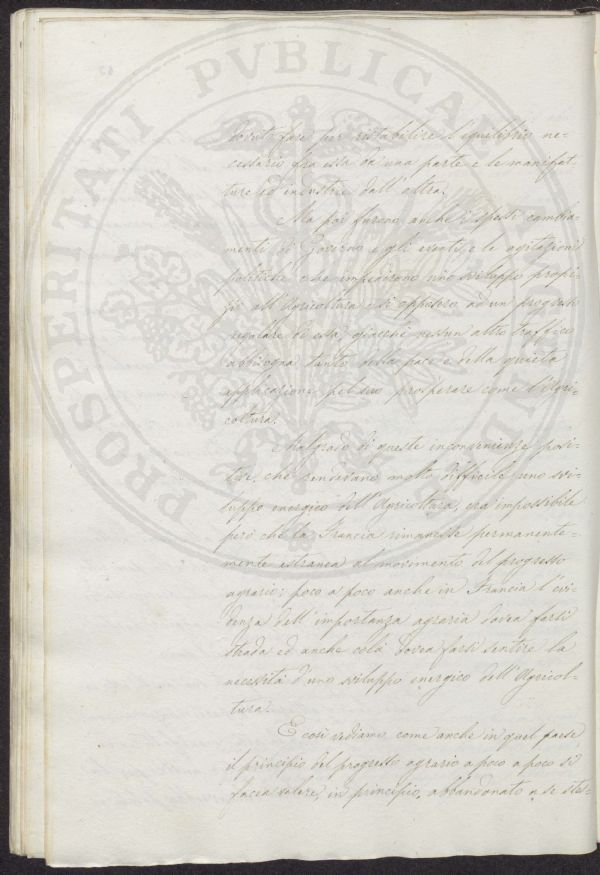 dovuto fare per ristabilire l'equilibrio ne-
cessario fra essa da una parte e le manifat-
ture ed industrie dall'altra.
Ma poi furono anche i spessi cambia-
menti di Governo e gli eventi e le agitazioni
politiche che impedirono uno sviluppo propi-
zio all'Agricoltura e si opposero ad un progresso
regolare di essa, giacchè nessun altro traffico
abbisogna tanto della pace e della quieta
applicazione pel suo prosperare come l'Agri-
coltura.
Malgrado di queste inconvenienze posi-
tive, che rendevano molto difficile uno svi-
luppo energico dell'Agricoltura, era impossibile
però che la Francia rimanesse permanente-
mente estranea al movimento del progresso
agrario; poco a poco anche in Francia l'evi-
denza dell'importanza agraria dovea farsi
strada ed anche colà dovea farsi sentire la
necessità d'uno sviluppo energico dell'Agricol-
tura.
E così vediamo come anche in quel paese
il principio del progresso agrario a poco a poco si
facea valere, in principio, abbandonato a se stes-
PROSPERITATI PVBLICAE